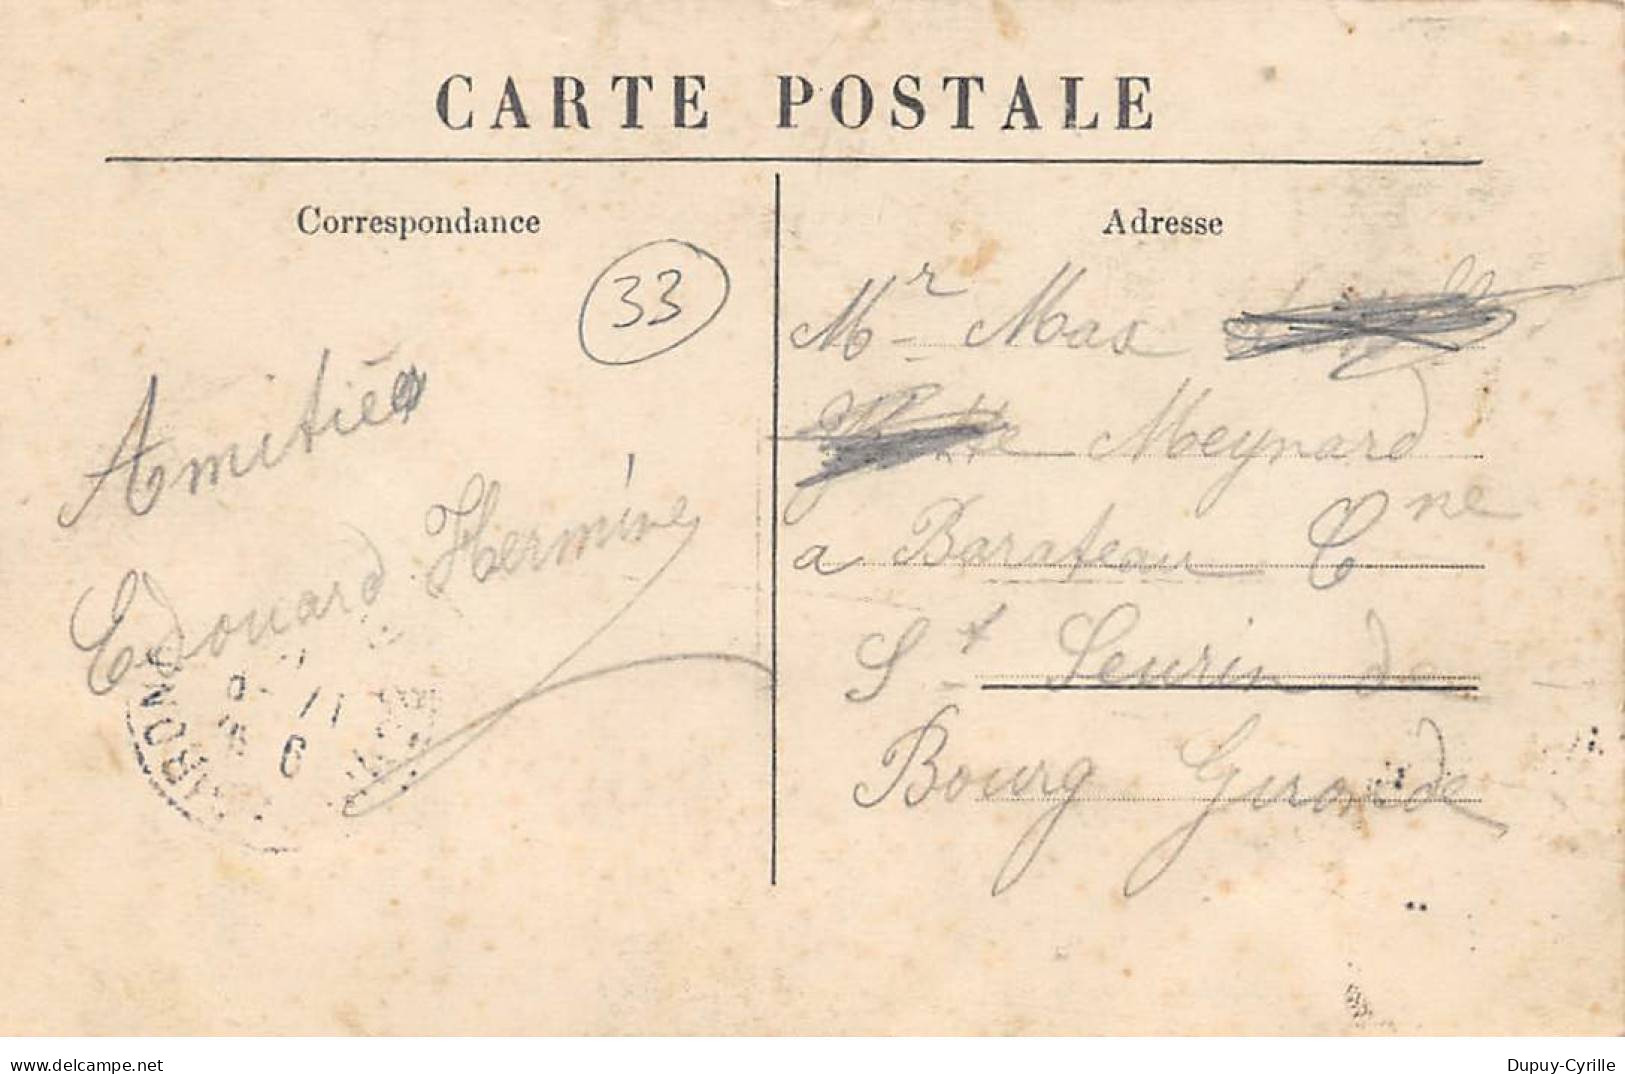 CARTE POSTALE
Correspondance
33
Amitiés
Edouard Hermine
Adresse
Mr Max
Meynard
a Barateau Cne
St Seurin de
Bourg Gironde
delcampe.net
Dupuy-Cyrille